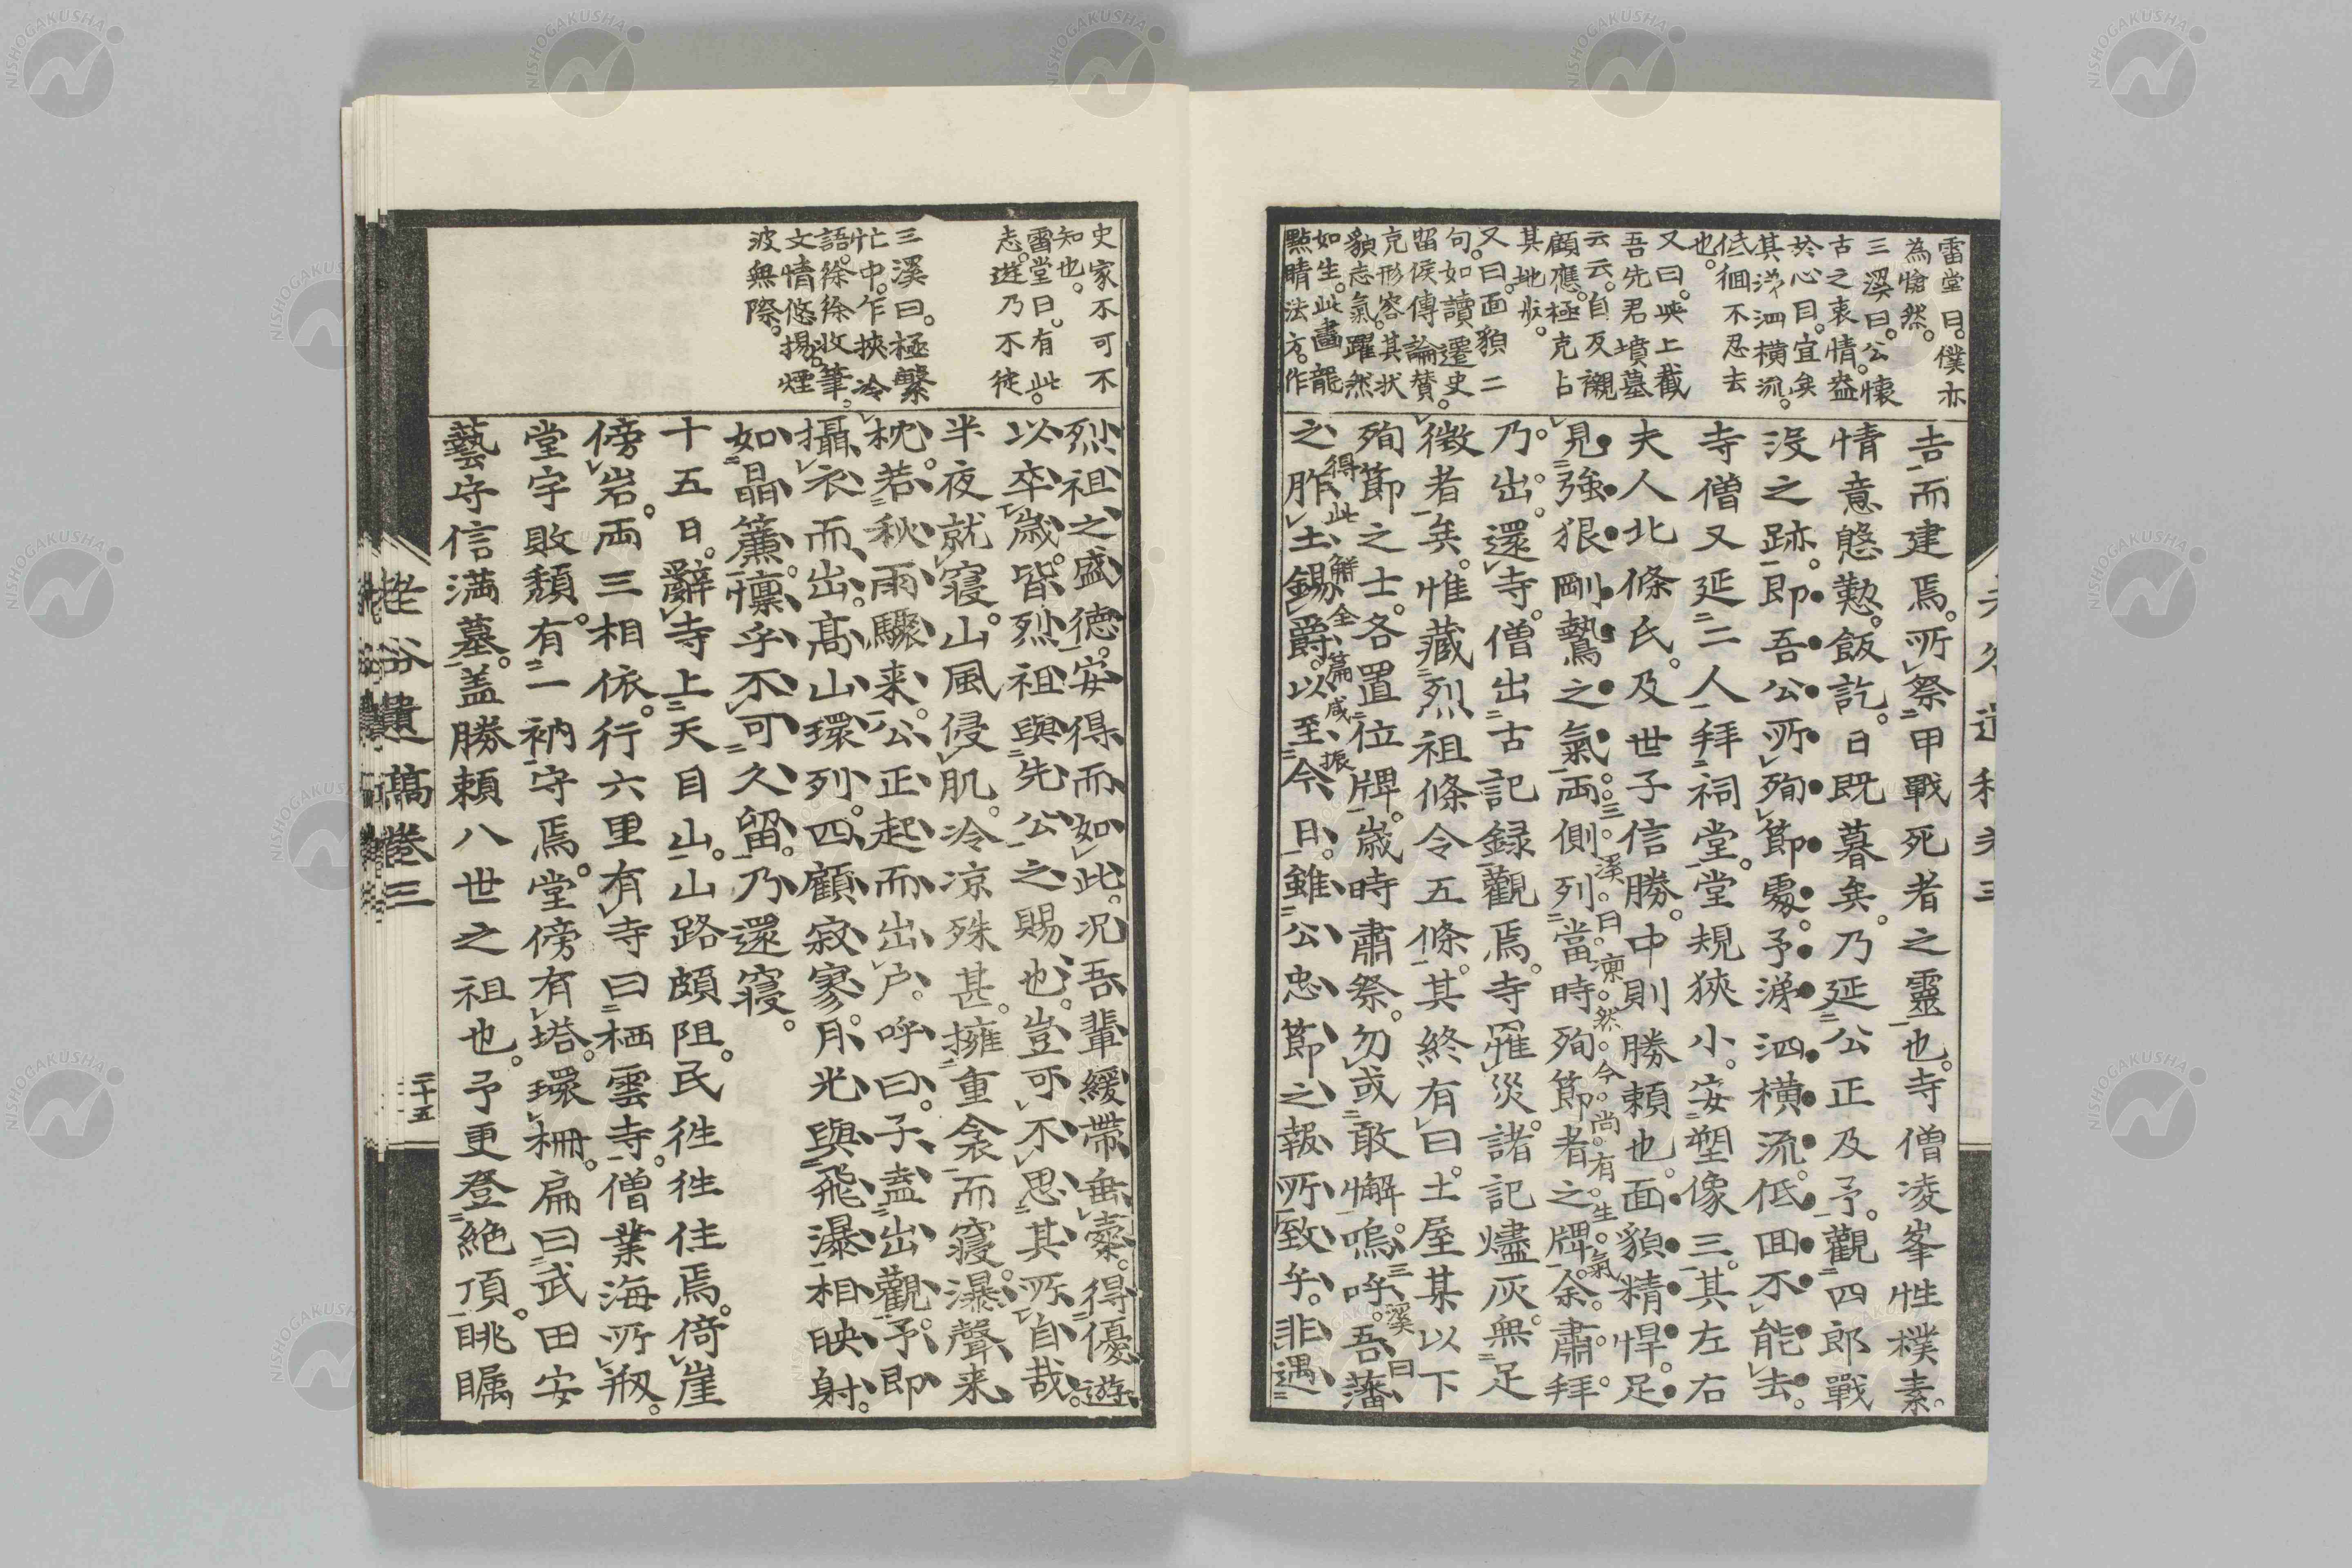 雷堂曰。僕亦
為愴然。
三溪曰。公懷
古之衷情。益
於心目。宜矣
其涕泗橫流。
低徊不忍去
也。
又曰。映上截
吾先君墳墓
云云。自反襯
顧應。極克占
其地步。
又曰。面貌二
句。如讀遷史
留侯傳論贊。
克形容其狀
貌志氣。躍然
如生。此畫龍
點睛法。方作
吉而建焉。所祭甲戰死者之靈也。寺僧凌峯性樸素。
情意慇懃。飯訖。日既暮矣。乃延公正及予。觀四郎戰
沒之跡。即吾公所殉節處。予涕泗橫流。低回不能去。
寺僧又延二人拜祠堂。堂規狹小。安塑像三。其左右
夫人北條氏。及世子信勝。中則勝頼也。面貌精悍。足
見強狠剛鷙之氣。両側列當時殉節者之牌。余肅拜
三溪曰。凛然。今尚有生氣。
乃出。還寺。僧出古記録觀焉。寺罹災。諸記燼灰。無足
徴者矣。惟藏烈祖條令五條。其終有曰。土屋某以下
殉節之士。各置位牌。歳時肅祭。勿或敢懈。嗚呼。吾藩
三溪曰
得此解全篇咸振
之胙土錫爵。以至今日。雖公忠節之報所致乎。非遇
史家不可不
知也。
雷堂曰。有此
志。遊乃不徒
三溪曰。極繁
忙中。乍挾冷
語。徐徐收筆。
文情悠揚。煙
波無際。
烈祖之盛德。安得而如此。況吾輩緩帶垂橐。得優遊
以卒歳。皆烈祖與先公之賜也。豈可不思其所自哉。
半夜就寢。山風侵肌。冷凉殊甚。擁重衾而寢。瀑聲来
枕。若秋雨驟来。公正起而出戸。呼曰。子盍出觀。予即
攝衣而出。髙山環列。四顧寂寥。月光與飛瀑相映射。
如晶簾。懍乎不可久留。乃還寢。
十五日。辭寺上天目山。山路頗阻。民徃徃住焉。倚崖
傍岩。両三相依。行六里有寺曰栖雲寺。僧業海所剏。
堂宇敗頽。有一衲守焉。堂傍有塔。環柵。扁曰武田安
藝守信満墓。盖勝頼八世之祖也。予更登絶頂。眺矚
二十五